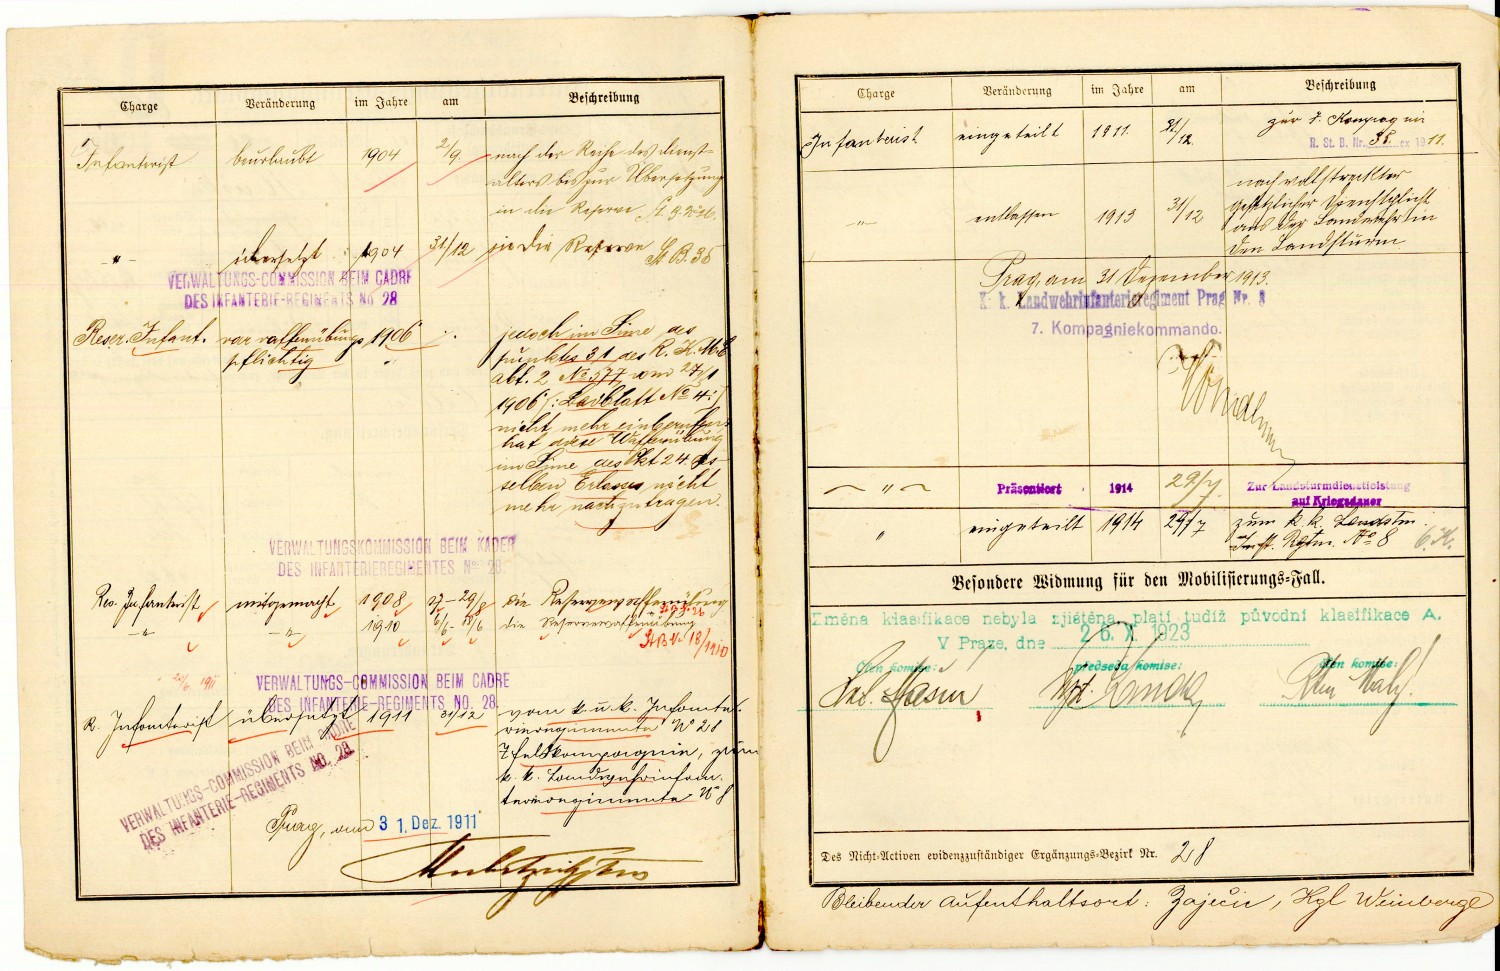 Charge Veränderung im Jahre am Beschreibung
Infanterist beurlaubt 1904 2/9. nach der Reihe des Dienst-
alters bis zur Übersetzung
in die Reserve
-"- übersetzt 1904 31/12 in die Reserve St. B. 35
VERWALTUNGS-COMMISSION BEIM CADRE
DES INFANTERIE-REGIMENTS No 28
Reser. Infant. war waffenübungs 1906 jedoch im Sinne des
pflichtig " Punktes 31 des R. K. M. E
abt. 2 No 577 vom 27/1
1906 No 4
nicht mehr einberufen
hat diese Waffenübung
im Sinne des Pkt 24 des-
selben Erlasses nicht
mehr nachzutragen.
VERWALTUNGSKOMMISSION BEIM KADER
DES INFANTERIEREGIMENTES No 28.
Res. Infanterist mitgemacht 1908 die Reservewaffenübung
-"- -"- 1910 die Reservewaffenübung
18/1910
1911
VERWALTUNGS-COMMISSION BEIM CADRE
DES INFANTERIE-REGIMENTS NO. 28
R. Infanterist übersetzt 1911 31/12 vom k. u. k. Infante-
rieregimente No 28
7 Feldkompagnie, zum
k. k. Landwehrinfan-
terieregimente No 8
VERWALTUNGS-COMMISSION BEIM CADRE
DES INFANTERIE-REGIMENTS NO. 28
Prag, am 31. Dez. 1911
Charge Veränderung im Jahre am Beschreibung
Infanterist eingeteilt 1911. 31/12. zur 7. Kompagnie
R. St. B. Nr. 35 ex 1911.
-"- entlassen 1913 31/12 nach vollstreckter
gesetzlicher Dienstpflicht
aus der Landwehr in
den Landsturm
Prag, am 31 Dezember 1913.
K. k. Landwehrinfanterieregiment Prag Nr. 8
7. Kompagniekommando.
" Präsentiert 1914 29/7. Zur Landsturmdienstleistung
auf Kriegsdauer
" eingeteilt 1914 29/7 zum k. k. Landstm.
Inft. Rgtm. No 8 6. K.
Besondere Widmung für den Mobilisierungs-Fall.
Změna klasifikace nebyla zjištěna, platí tudíž původní klasifikace A.
V Praze, dne 26. X. 1923
Člen komise: předseda komise: člen komise:
Des Nicht-Activen evidenzzuständiger Ergänzungs-Bezirk Nr. 28
Bleibender Aufenthaltsort: Zaječic, Kgl Weinberge